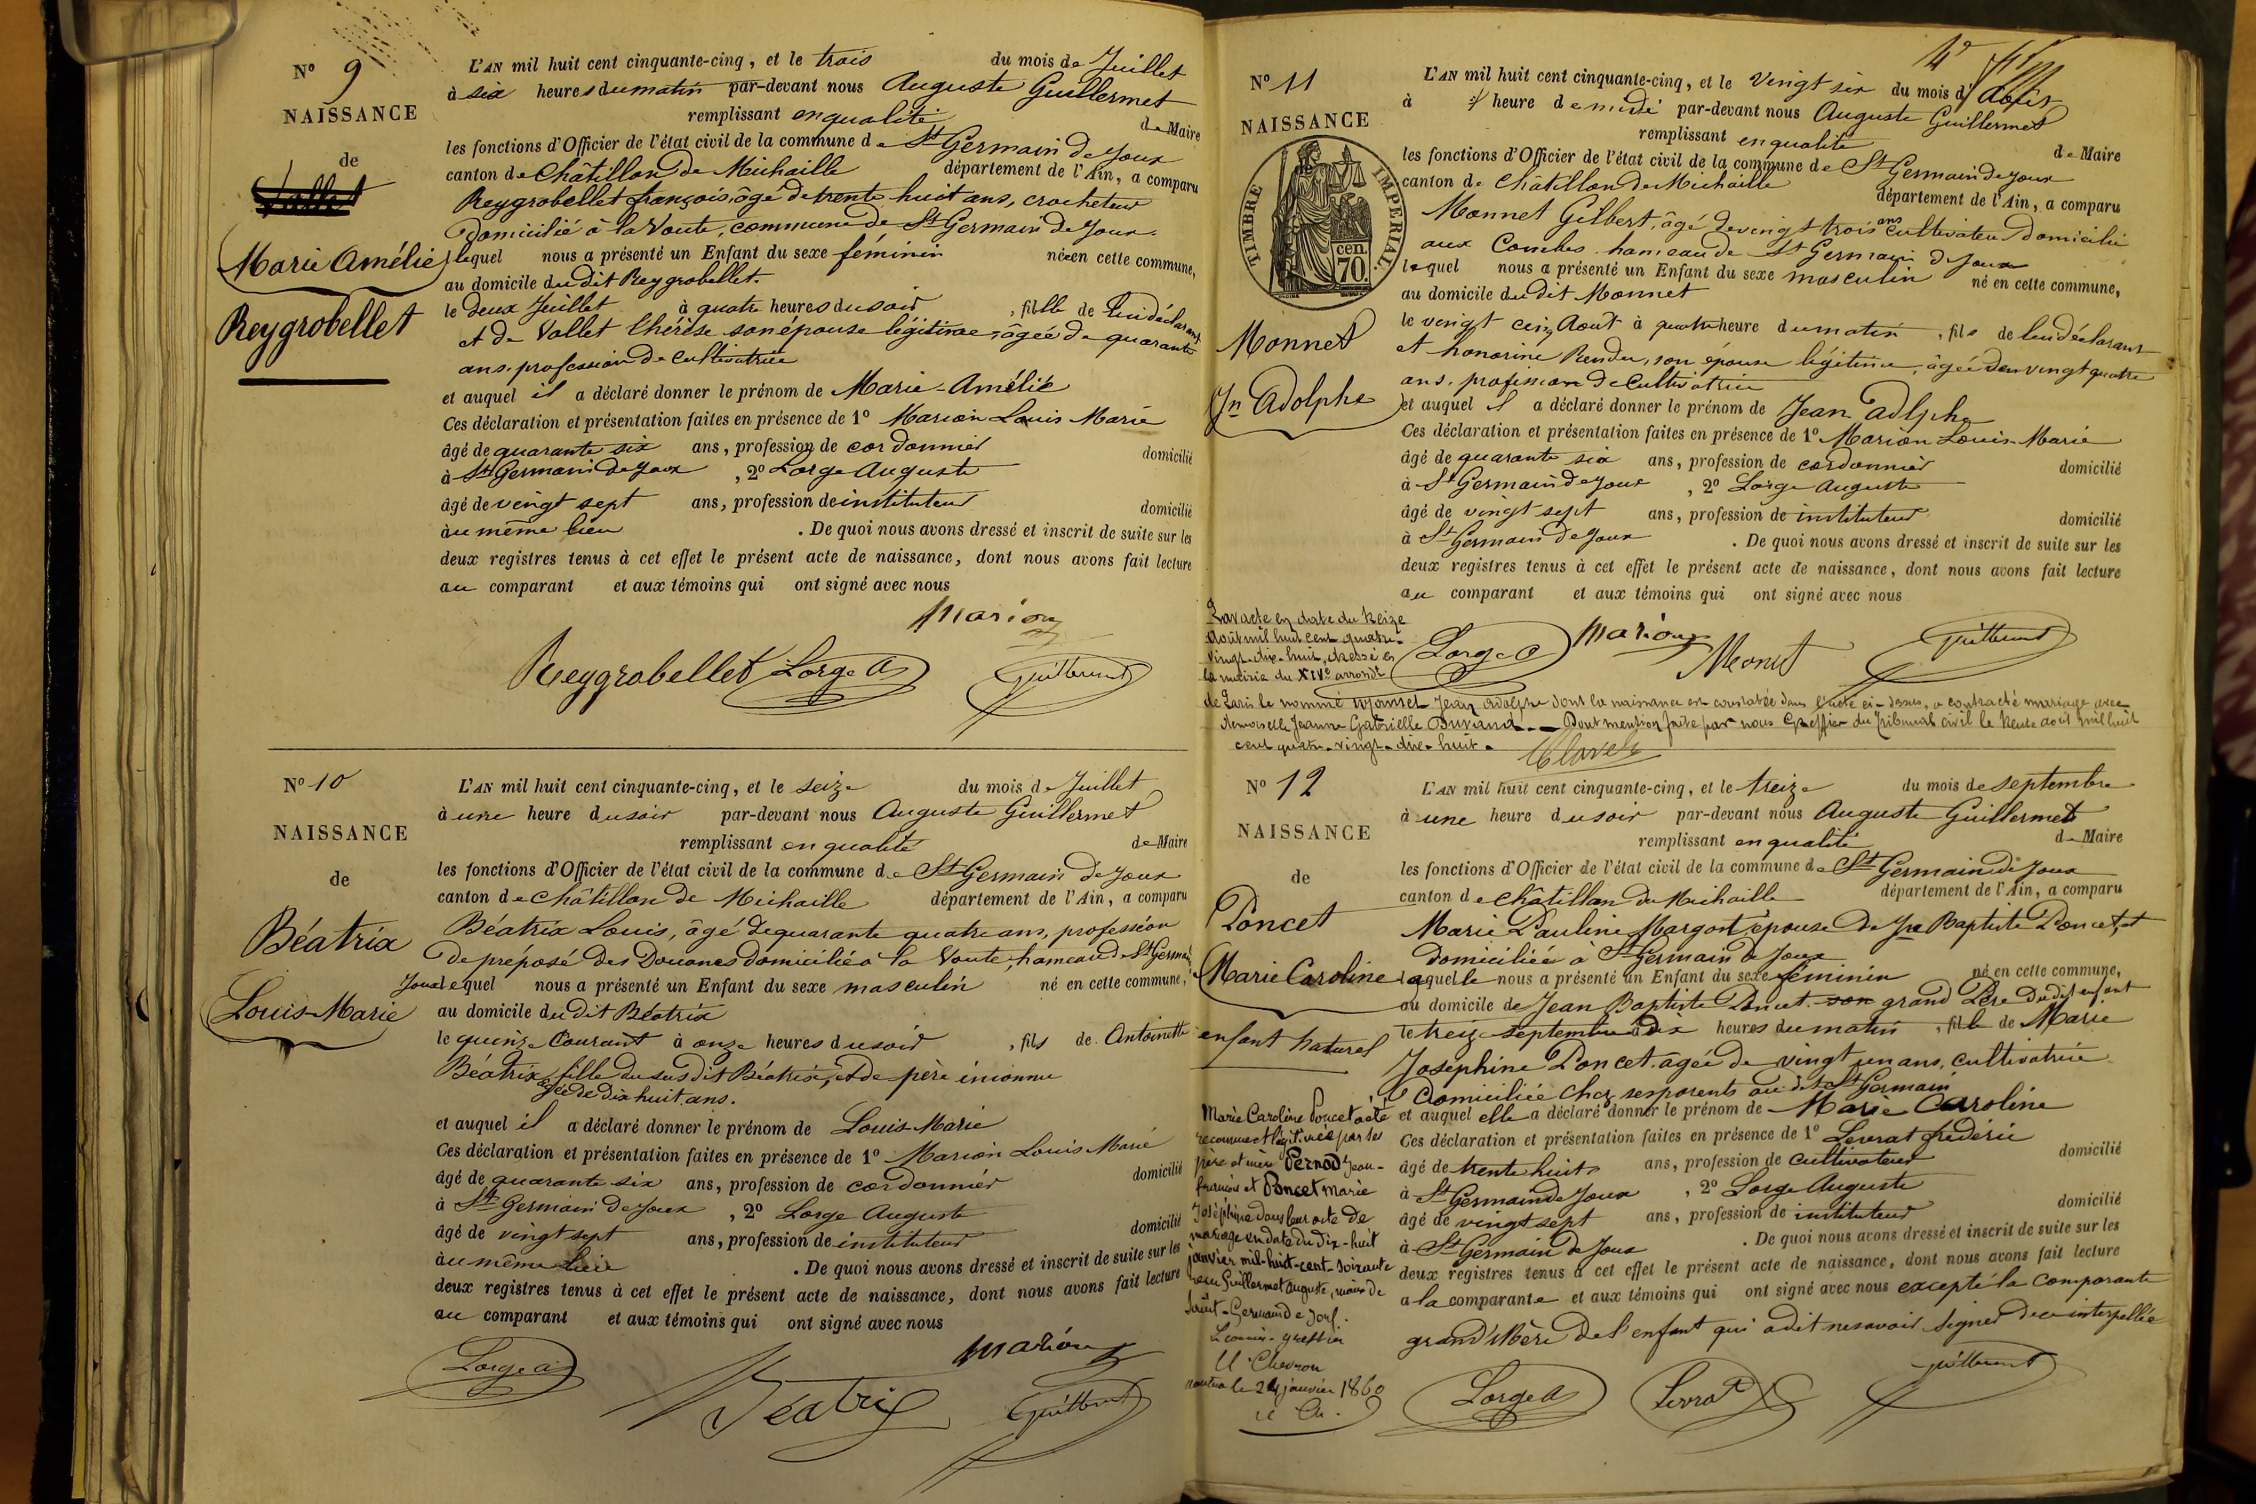 Nº 9
NAISSANCE
de
Marie Amélie
Reygrobellet
L'AN mil huit cent cinquante-cinq, et le trois du mois de Juillet
à six heures du matin par-devant nous Auguste Guillermet
remplissant en qualité de Maire
les fonctions d'Officier de l'état civil de la commune de St Germain de Joux
canton de Châtillon de Michaille département de l'Ain, a comparu
Reygrobellet françois, âgé de trente huit ans, crocheteur
domicilié à la Voute, commune de St Germain de Joux.
lequel nous a présenté un Enfant du sexe féminin née en cette commune,
au domicile du dit Reygrobellet.
le deux Juillet à quatre heures du soir, fille de lui déclarant
et de Vallet thérèse son épouse légitime, âgée de quarante
ans, profession de cultivatrice
et auquel il a déclaré donner le prénom de Marie-Amélie
Ces déclaration et présentation faites en présence de 1º Marion Louis Marie
âgé de quarante six ans, profession de cordonnier domicilié
à St Germain de Joux, 2º Lorge Auguste
âgé de vingt sept ans, profession de instituteur domicilié
au même lieu. De quoi nous avons dressé et inscrit de suite sur les
deux registres tenus à cet effet le présent acte de naissance, dont nous avons fait lecture
au comparant et aux témoins qui ont signé avec nous
Marion
Reygrobellet Lorge A Guillermet
Nº 10
NAISSANCE
de
Béatrix
Louis-Marie
L'AN mil huit cent cinquante-cinq, et le seize du mois de Juillet
à une heure du soir par-devant nous Auguste Guillermet
remplissant en qualité de Maire
les fonctions d'Officier de l'état civil de la commune de St Germain de Joux
canton de Châtillon de Michaille département de l'Ain, a comparu
Béatrix Louis, âgé de quarante quatre ans, profession
de préposé des Douanes domicilié à la Voute, hameau de St Germain
Joux lequel nous a présenté un Enfant du sexe masculin né en cette commune,
au domicile du dit Béatrix
le quinze Courant à onze heures du soir, fils de Antoinette
Béatrix, fille du sus dit Béatrix, et de père inconnu
âgée de dix huit ans.
et auquel il a déclaré donner le prénom de Louis-Marie
Ces déclaration et présentation faites en présence de 1º Marion Louis Marie
âgé de quarante six ans, profession de cordonnier domicilié
à St Germain de Joux, 2º Lorge Auguste
âgé de vingt sept ans, profession de instituteur domicilié
au même lieu. De quoi nous avons dressé et inscrit de suite sur les
deux registres tenus à cet effet le présent acte de naissance, dont nous avons fait lecture
au comparant et aux témoins qui ont signé avec nous
Marion
Lorge A Béatrix Guillermet
Nº 11
NAISSANCE
TIMBRE IMPERIAL.
cen.
70
Monnet
Jn Adolphe
L'AN mil huit cent cinquante-cinq, et le vingt six du mois d'Août
à heure de midi par-devant nous Auguste Guillermet
remplissant en qualité de Maire
les fonctions d'Officier de l'état civil de la commune de St Germain de Joux
canton de Châtillon de Michaille département de l'Ain, a comparu
Monnet Gilbert, âgé de vingt trois ans cultivateur domicilié
aux Combes hameau de St Germain de Joux
lequel nous a présenté un Enfant du sexe masculin né en cette commune,
au domicile du dit Monnet
le vingt cinq Août à quatre heure du matin, fils de lui déclarant
et honorine Rendu, son épouse légitime, âgée de vingt quatre
ans, profession de Cultivatrice
et auquel il a déclaré donner le prénom de Jean Adlphe
Ces déclaration et présentation faites en présence de 1º Marion Louis Marie
âgé de quarante six ans, profession de cordonnier domicilié
à St Germain de Joux, 2º Lorge Auguste
âgé de vingt sept ans, profession de instituteur domicilié
à St Germain de Joux. De quoi nous avons dressé et inscrit de suite sur les
deux registres tenus à cet effet le présent acte de naissance, dont nous avons fait lecture
au comparant et aux témoins qui ont signé avec nous
Lorge A Marion Monet Guillermet
Par acte en date du treize
Août mil huit cent quatre-
vingt-dix-huit, dressé en
la mairie du XIVe arrondt
de Paris le nommé Monnet Jean Adolphe dont la naissance est constatée dans l'acte ci-dessus, a contracté mariage avec
demoiselle Jeanne Gabrielle Durand. Dont mention faite par nous Greffier du Tribunal civil le trente août mil huit
cent quatre-vingt-dix-huit.
Nº 12
NAISSANCE
de
Poncet
Marie Caroline
enfant naturel
L'AN mil huit cent cinquante-cinq, et le treize du mois de septembre
à une heure du soir par-devant nous Auguste Guillermet
remplissant en qualité de Maire
les fonctions d'Officier de l'état civil de la commune de St Germain de Joux
canton de Châtillon de Michaille département de l'Ain, a comparu
Marie Pauline Margont épouse de Jn Baptiste Poncet, et
domiciliée à St Germain de Joux
laquelle nous a présenté un Enfant du sexe féminin né en cette commune,
au domicile de Jean Baptiste Poncet son grand Père du dit enfant
le treize septembre à dix heures du matin, fille de Marie
Joséphine Poncet âgée de vingt un ans, cultivatrice
domiciliée chez ses parents au dit St Germain
et auquel elle a déclaré donner le prénom de Marie Caroline
Ces déclaration et présentation faites en présence de 1º Levrat frédéric
âgé de trente huit ans, profession de cultivateur domicilié
à St Germain de Joux, 2º Lorge Auguste
âgé de vingt sept ans, profession de instituteur domicilié
à St Germain de Joux. De quoi nous avons dressé et inscrit de suite sur les
deux registres tenus à cet effet le présent acte de naissance, dont nous avons fait lecture
a la comparante et aux témoins qui ont signé avec nous excepté la comparante
grand'Mère de l'enfant qui a dit ne savoir signer de ce interpellée
Lorge A Levrat Guillermet
Marie Caroline Poncet a été
reconnue et légitimée par ses
père et mère Pernod Jean-
françois et Poncet marie
Joséphine dans leur acte de
mariage en date du dix-huit
janvier mil-huit-cent-soixante
reçu Guillermet auguste, maire de
Saint-Germain de Joux.
Le commis-greffier
U Chevron
nantua le 24 janvier 1860